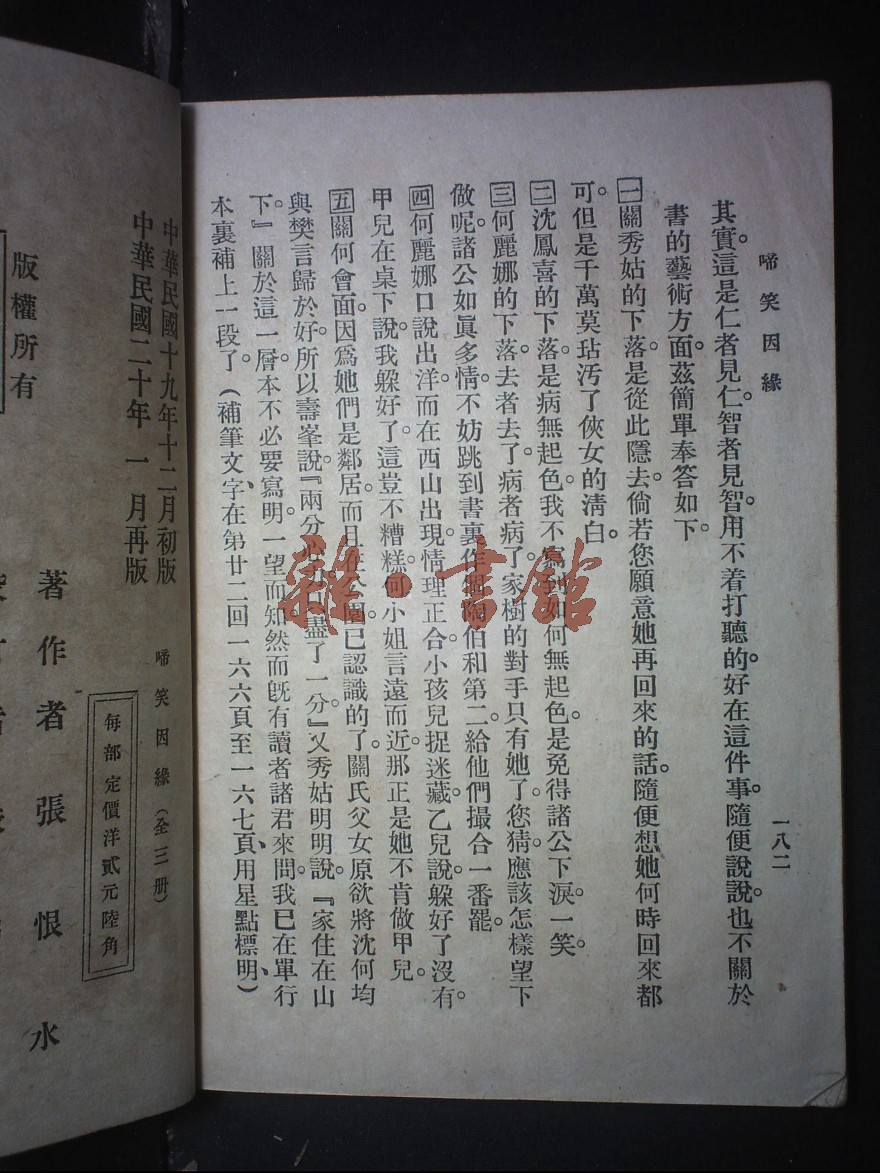 啼笑因緣
一八二
其實。這是仁者見仁。智者見智。用不着打聽的。好在這件事。隨便說說。也不關於
書的藝術方面。茲簡單奉答如下。
一關秀姑的下落。是從此隱去。倘若您願意她再回來的話。隨便想她何時回來都
可。但是千萬莫玷汚了俠女的淸白。
二沈鳳喜的下落。是病無起色。我不寫到如何無起色。是免得諸公下淚。一笑。
三何麗娜的下落。去者去了。病者病了。家樹的對手只有她了。您猜。應該怎樣望下
做呢。諸公如眞多情。不妨跳到書裏作個陶伯和第二。給他們撮合一番罷。
四何麗娜口說出洋。而在西山出現。情理正合。小孩兒捉迷藏。乙兒說。躱好了沒有。
甲兒在桌下說。我躱好了。這豈不糟糕。何小姐言遠而近。那正是她不肯做甲兒。
五關何會面。因爲她們是鄰居。而且在公園已認識的了。關氏父女原欲將沈何均
與樊言歸於好。所以壽峯說。『兩分心力只盡了一分。』又秀姑明明說。『家住在山
下。』關於這一層。本不必要寫明。一望而知。然而旣有讀者諸君來問。我已在單行
本裏補上一段了。（補筆文字、在第廿二回一六六頁至一六七頁、用星點標明、）
中華民國十九年十二月初版
中華民國二十年一月再版
啼笑因緣（全三册）
每部定價洋貳元陸角
著作者張恨水
版權所有
雜·書館